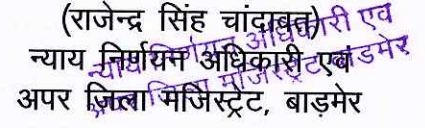 (राजेन्द्र सिंह चांदावत)
न्याय निर्णयन अधिकारी एवं
अपर जिला मजिस्ट्रेट, बाड़मेर
न्याय निर्णयन अधिकारी एव
जिला मजिस्ट्रेट बाडमेर